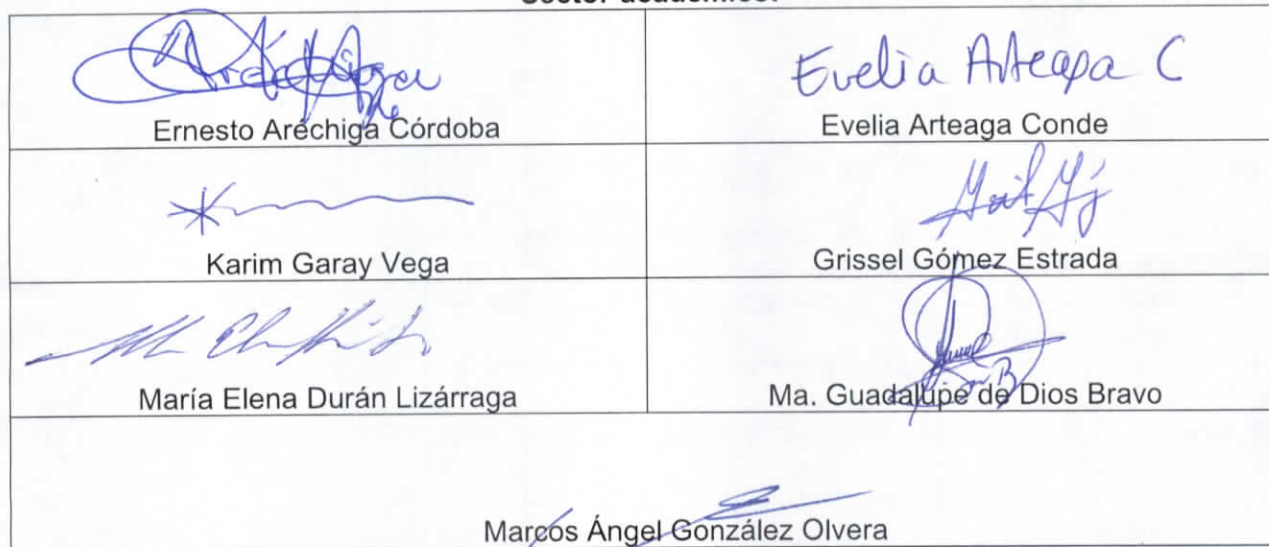 Sector académico:
Ernesto Aréchiga Córdoba
Evelia Arteaga C
Evelia Arteaga Conde
Karim Garay Vega
Grissel Gómez Estrada
María Elena Durán Lizárraga
Ma. Guadalupe de Dios Bravo
Marcos Ángel González Olvera